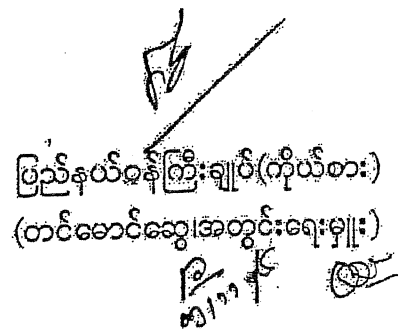 ပြည်နယ်ဝန်ကြီးချုပ်(ကိုယ်စား)
(တင်မောင်ဆွေ၊အတွင်းရေးမှူး)